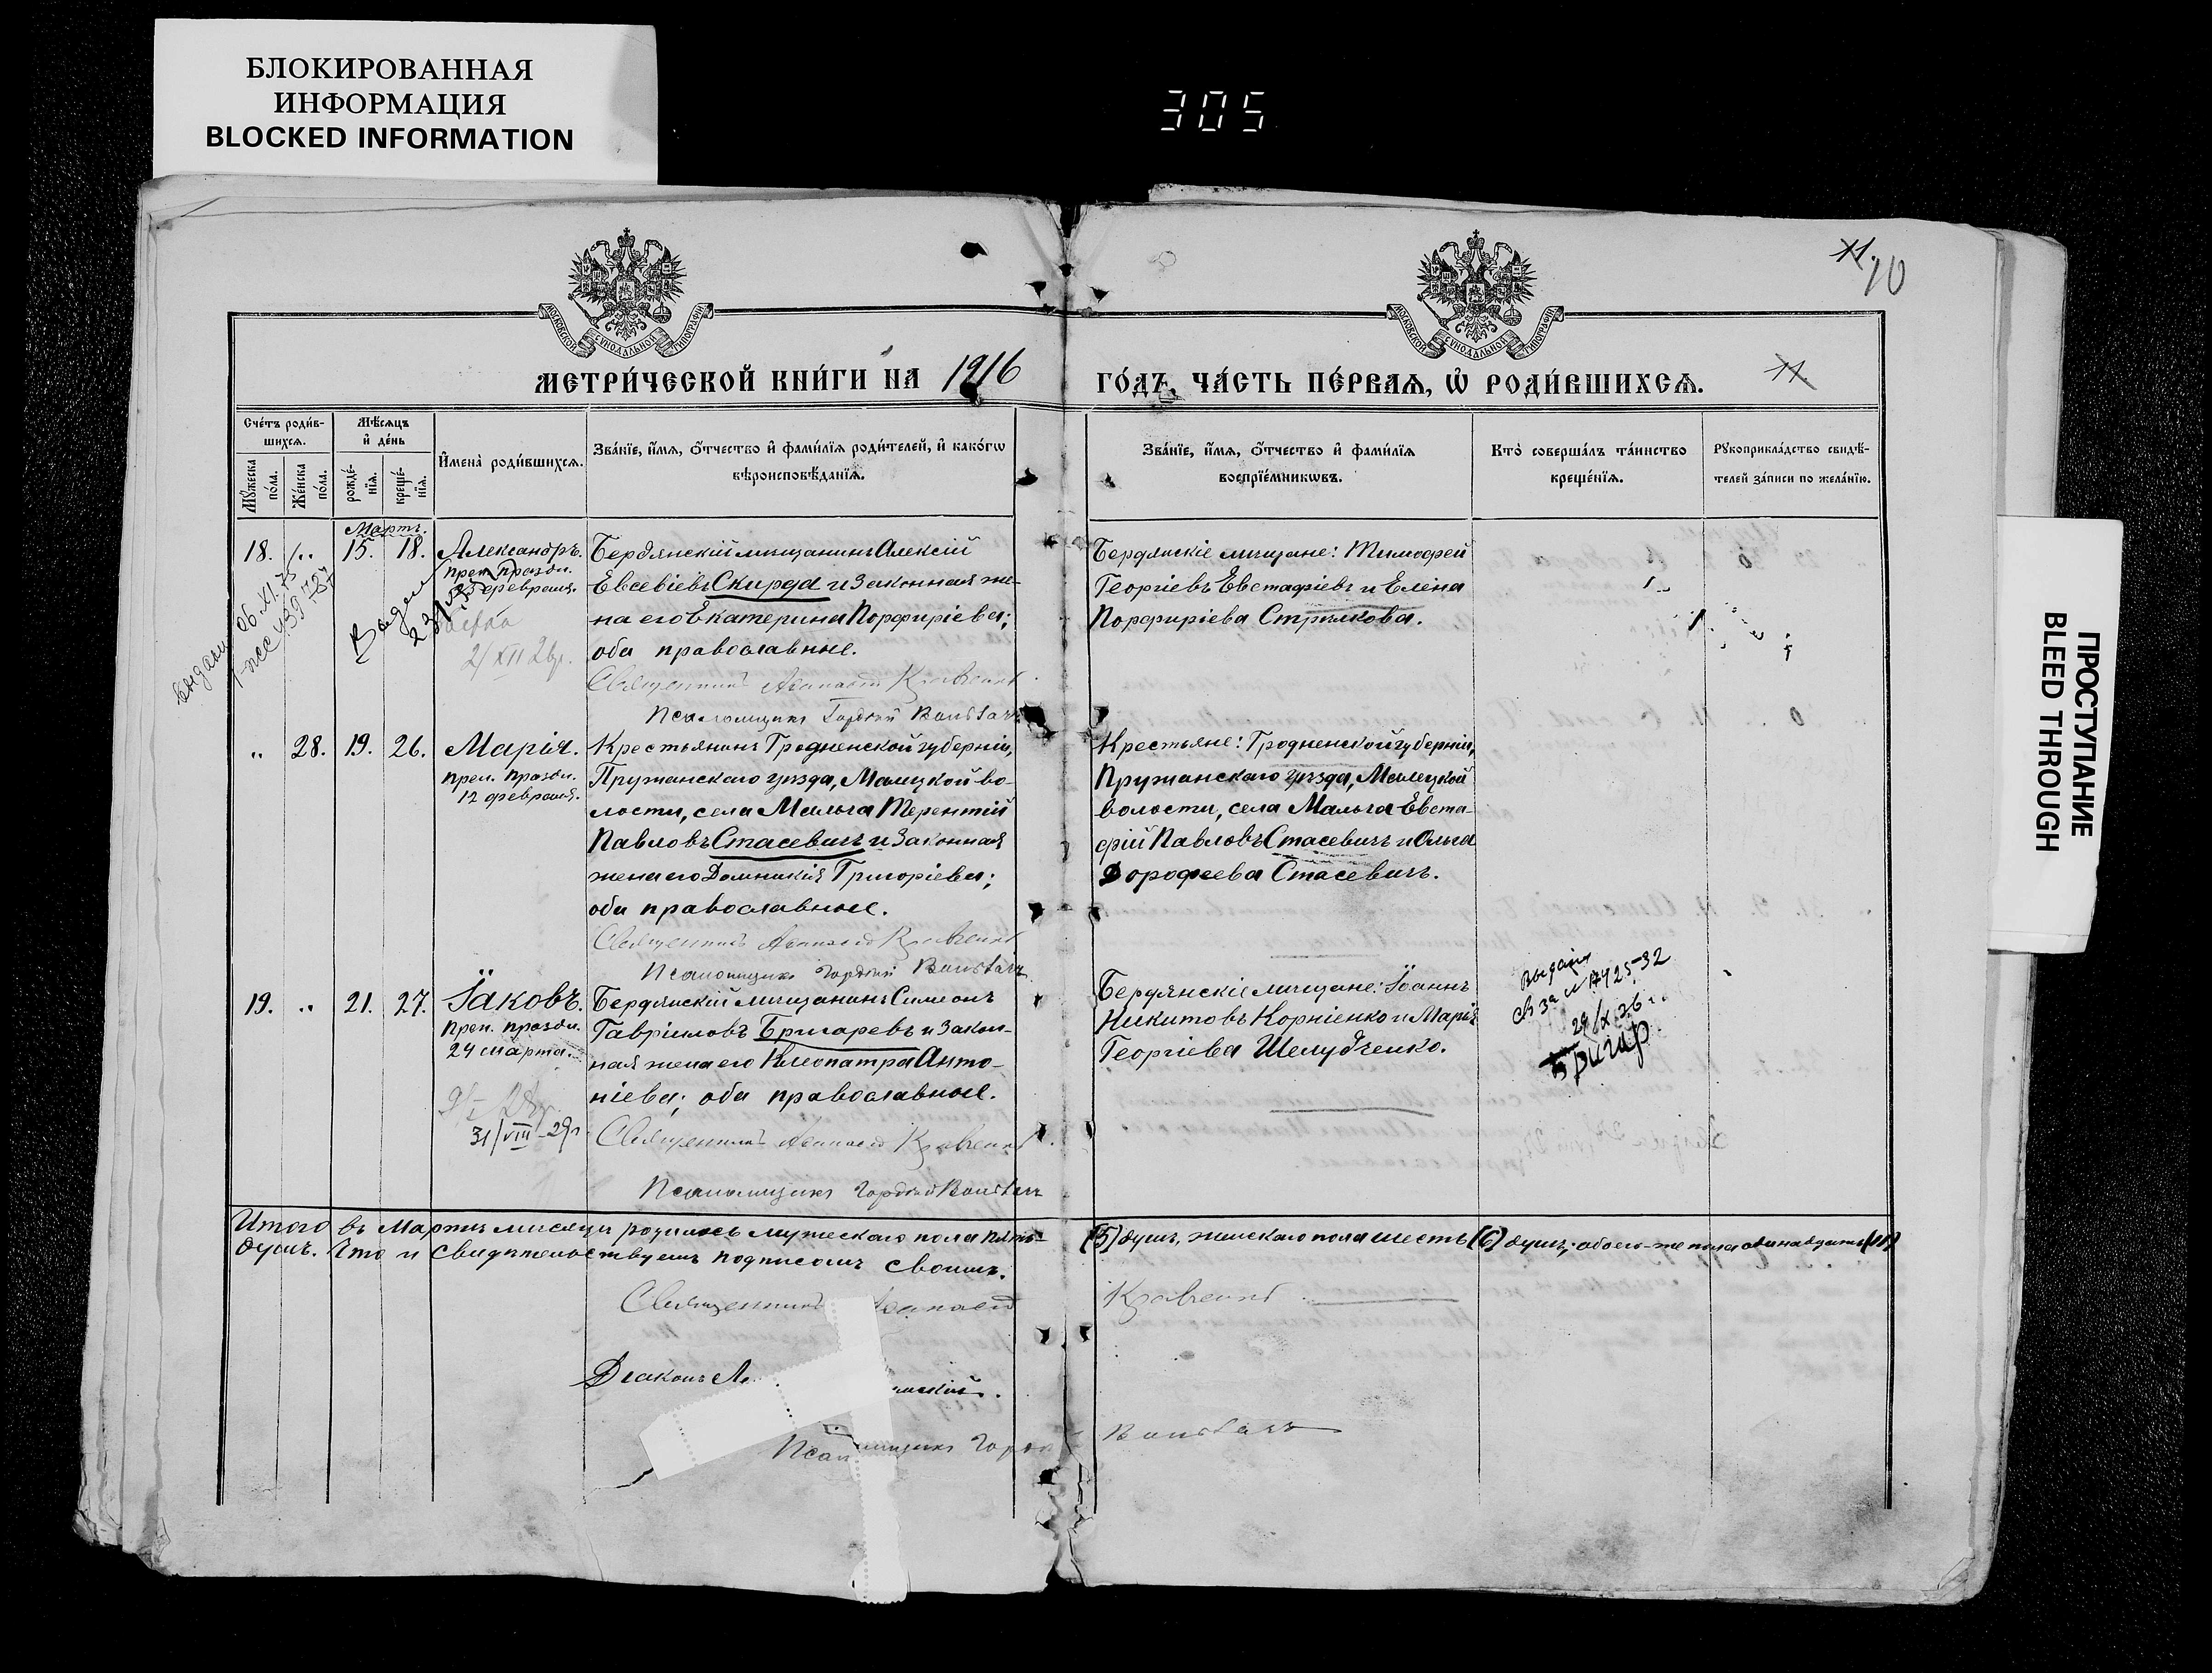 БЛОКИРОВАННАЯ
ИНФОРМАЦИЯ
BLOCKED INFORMATION
305
ПРОСТУПАНИЕ
BLEED THROUGH
11. 10
МОСКОВСКОЙ СѴНОДАЛЬНОЙ ТИПОГРАФІИ
МОСКОВСКОЙ СѴНОДАЛЬНОЙ ТИПОГРАФІИ
МЕТРИ́ЧЕСКОЙ КНИ́ГИ НА 1916
ГО́ДЪ, ЧА́СТЬ ПЕ́РВАѦ, Ѡ҆ РОДИ́ВШИХСѦ.
11
Сче́тъ роди́в-
шихсѧ.
Мꙋ́жеска по́ла.
Же́нска по́ла.
Мѣ́сѧцъ
и҆ де́нь
рожде́-
нїѧ.
креще́-
нїѧ.
И҆мена̀ роди́вшихсѧ.
Зва́нїе, и҆́мѧ, ѻ҆́тчество и҆ фами́лїѧ роди́телей, и҆ како́гѡ
вѣроисповѣ́данїѧ.
Зва́нїе, и҆́мѧ, ѻ҆́тчество и҆ фами́лїѧ
воспрїе́мникѡвъ.
Кто̀ соверша́лъ та́инство
креще́нїѧ.
Рꙋкоприкла́дство свидѣ́-
телей за́писи по жела́нїю.
Мартъ.
18. „ 15. 18. Александръ.
прел. праздн.
23 февраля.
Бердянскій мѣщанинъ Алексій
Евсевіевъ Скирда и законная же-
на его Екатерина Порфиріева;
оба православные.
Священникъ Кравченко
Псаломщикъ Гордій
Бердянскіе мѣщане: Тимофей
Георгіевъ Евстафіевъ и Елена
Порфиріева Стрѣлкова.
Выдан
2/XII 26г.
„ 28. 19. 26. Марія.
прел. праздн.
12 февраля.
Крестьянинъ Гродненской губерніи,
Пружанскаго уѣзда, Малецкой во-
лости, села Мальча Терентій
Павловъ Стасевичъ и законная
жена его Домникія Григоріева;
оба православные.
Священникъ Кравченко
Псаломщикъ Гордій
Крестьяне: Гродненской губерніи,
Пружанскаго уѣзда, Малецкой
волости, села Мальча Евста-
фій Павловъ Стасевичъ и Ольга
Дорофеева Стасевичъ.
19. „ 21. 27. Іаковъ.
прел. праздн.
24 марта.
31/VIII-29г.
Бердянскій мѣщанинъ Симеонъ
Гавріиловъ Бригаревъ и закон-
ная жена его Клеопатра Анто-
ніева; оба православные.
Священникъ Кравченко
Псаломщикъ Гордій
Бердянскіе мѣщане: Іоаннъ
Никитовъ Корніенко и Марія
Георгіева Шелудченко.
Выдан
29/X 36
Бригар
Итого въ Мартѣ мѣсяцѣ родилось мужескаго пола пять (5) душъ, женскаго пола шесть (6) душъ, обоего-же пола одинадцать (11)
душъ. Что и свидѣтельствуемъ подписомъ своимъ.
Священникъ Кравченко
Діаконъ
Псаломщикъ Горд